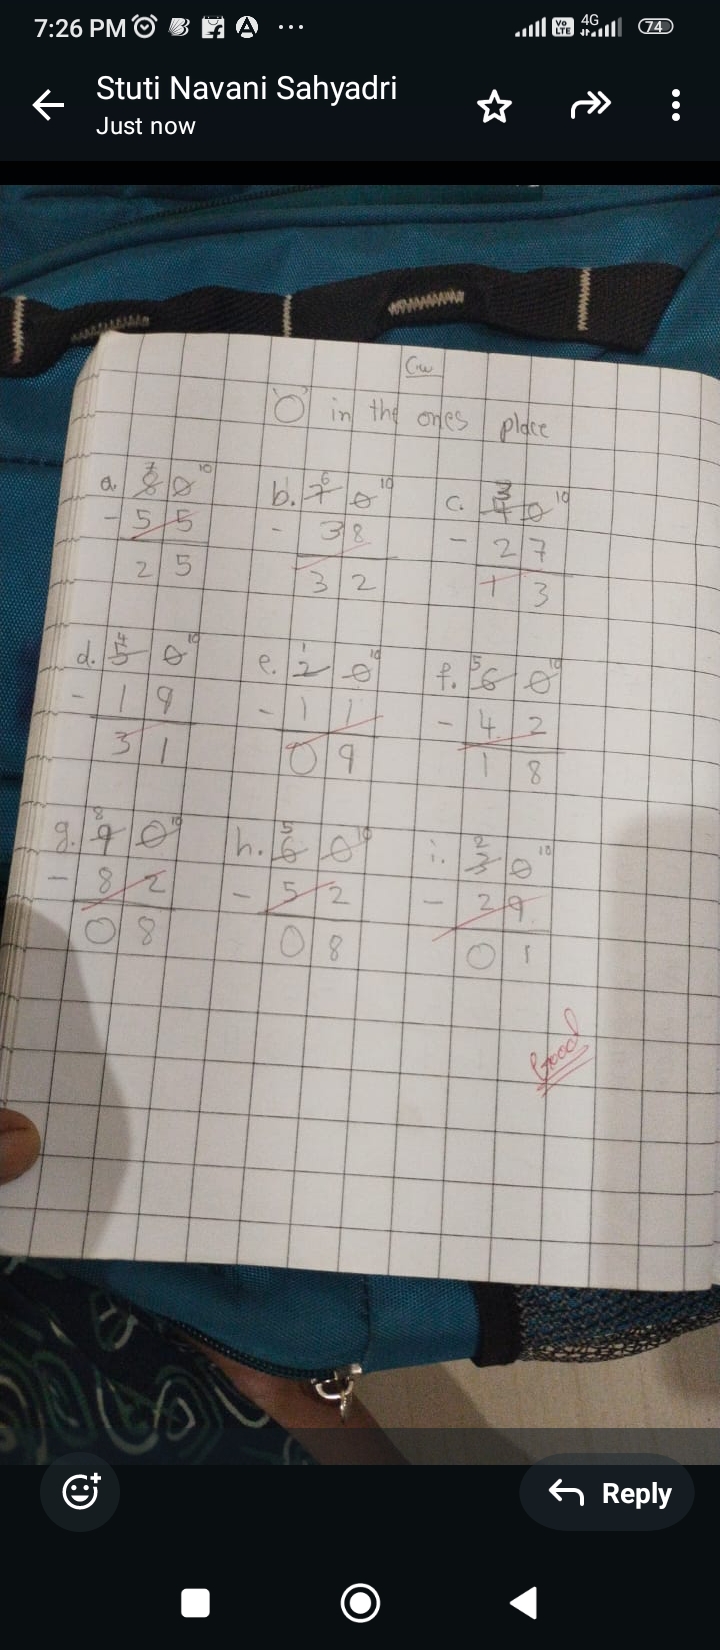 7:26 PM
Vo LTE 4G 74
Stuti Navani Sahyadri
Just now
Cw
'0' in the ones place
a. 7 10 b. 6 10 c. 3 10
8 0 7 0 4 0
- 5 5 - 3 8 - 2 7
2 5 3 2 1 3
d. 4 10 e. 1 10 f. 5 10
5 0 2 0 6 0
- 1 9 - 1 1 - 4 2
3 1 0 9 1 8
g. 8 10 h. 5 10 i. 2 10
9 0 6 0 3 0
- 8 2 - 5 2 - 2 9
0 8 0 8 0 1
Good
Reply